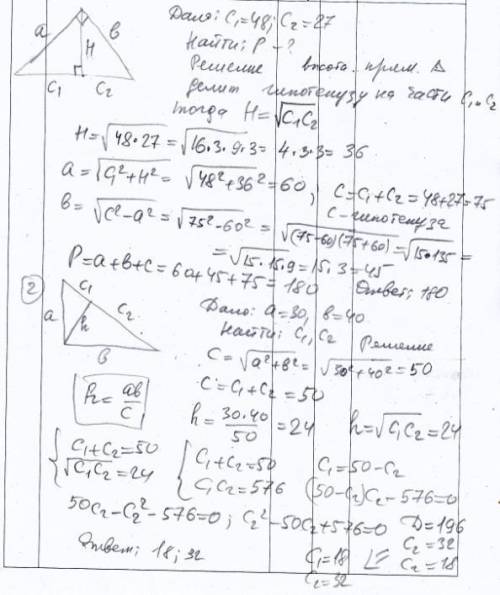 a b H C₁ C₂
Дано: C₁=48; C₂=27
Найти: P-?
Решение высота прям. Δ
делит гипотенузу на части C₁ и C₂
тогда H=√C₁C₂
H=√48·27=√16·3·9·3= 4·3·3= 36
a=√C₁²+H²= √48²+36²=60, C=C₁+C₂=48+27=75
C-гипотенуза
b=√C²-a²=√75²-60²= √(75-60)(75+60)=√15·135=
=√15·15·9=15·3=45
P=a+b+c=60+45+75=180 Ответ: 180
2 a C₁ h C₂ b
Дано: a=30, b=40
Найти: C₁, C₂
Решение
C=√a²+b²= √30²+40²=50
C=C₁+C₂=50
h=ab/C
h=30·40/50=24 h=√C₁C₂=24
{C₁+C₂=50 {C₁+C₂=50 C₁=50-C₂
√C₁C₂=24 C₁C₂=576 (50-C₂)C₂-576=0
50C₂-C₂²-576=0; C₂²-50C₂+576=0 D=196
C₂=32
Ответ: 18; 32 C₁=18 C₂=18
C₂=32